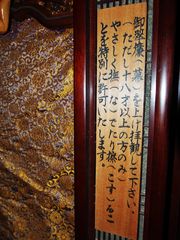 御簾(幕)を上げ拝観して下さい、
(ただし十八才以上の方のみ)
やさしく撫(な)でたり擦(こす)るこ
とを特別に許可いたします。